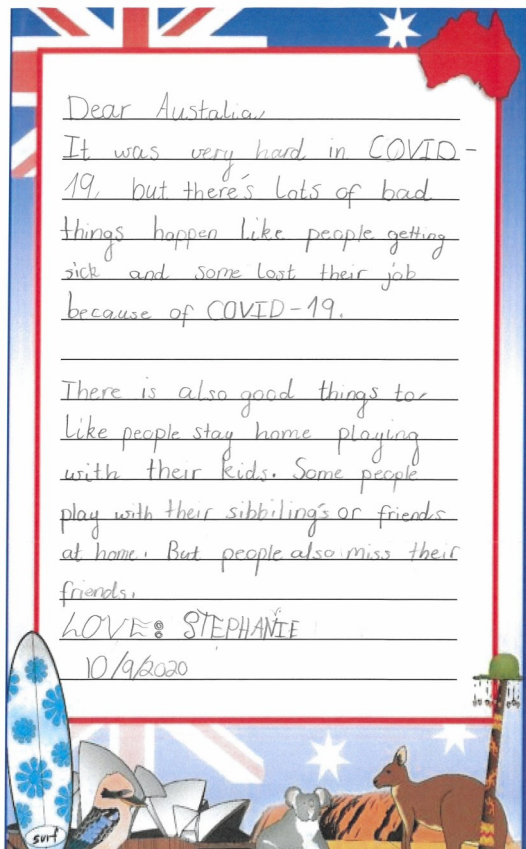 Dear Austalia,
It was very hard in COVID-
19, but there's lots of bad
things happen like people getting
sick and some lost their job
because of COVID-19.
There is also good things to,
like people stay home playing
with their kids. Some people
play with their sibbiling's or friends
at home. But people also miss their
friends.
LOVE: STEPHANIE
10/9/2020
surf